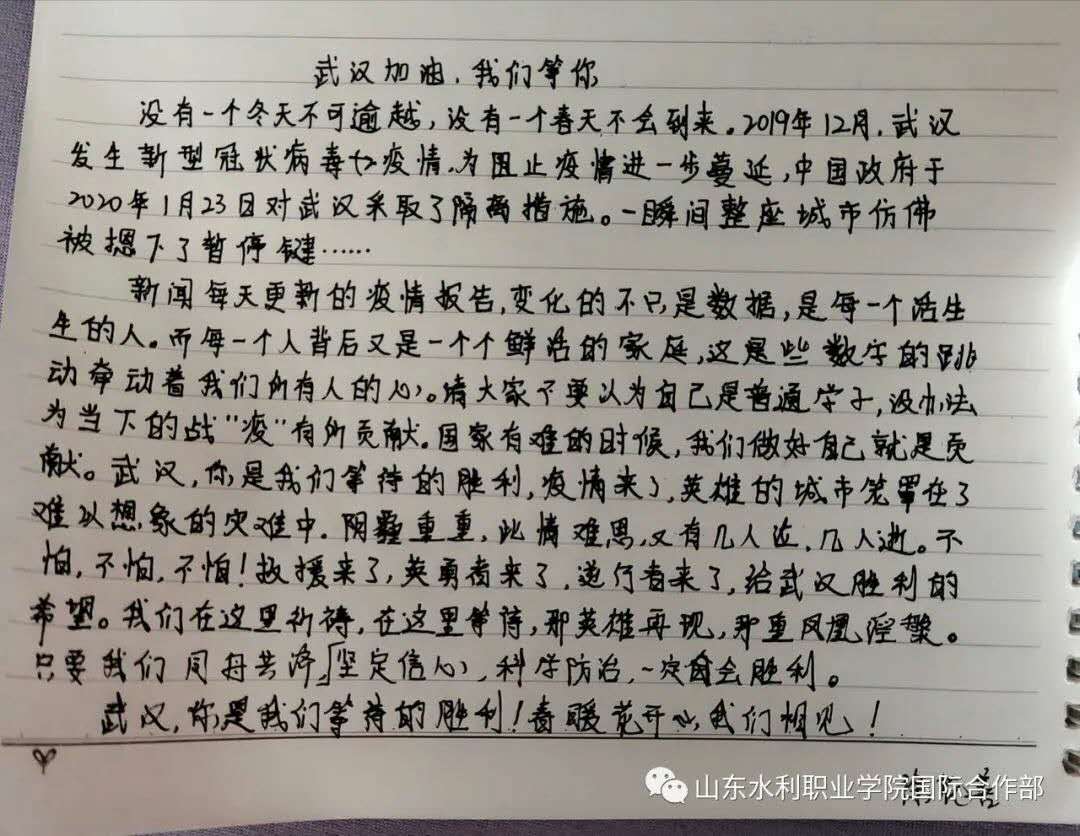 武汉加油，我们等你
没有一个冬天不可逾越，没有一个春天不会到来。2019年12月，武汉
发生新型冠状病毒疫情，为阻止疫情进一步蔓延，中国政府于
2020年1月23日对武汉采取了隔离措施。一瞬间整座城市仿佛
被摁下了暂停键……
新闻每天更新的疫情报告，变化的不只是数据，是每一个活生
生的人。而每一个人背后又是一个个鲜活的家庭，这是些数字的跳
动牵动着我们所有人的心。请大家不要以为自己是普通学子，没办法
为当下的战"疫"有所贡献。国家有难的时候，我们做好自己就是贡
献。武汉，你是我们等待的胜利，疫情来了，英雄的城市笼罩在了
难以想象的灾难中。阴霾重重，此情难思，又有几人泣，几人逝。不
怕，不怕，不怕！救援来了，英勇者来了，逆行者来了，给武汉胜利的
希望。我们在这里祈祷，在这里等待，那英雄再现，那重凤凰涅槃。
只要我们同舟共济，坚定信心，科学防治，一定会胜利。
武汉，你是我们等待的胜利！春暖花开，我们相见！
山东水利职业学院国际合作部